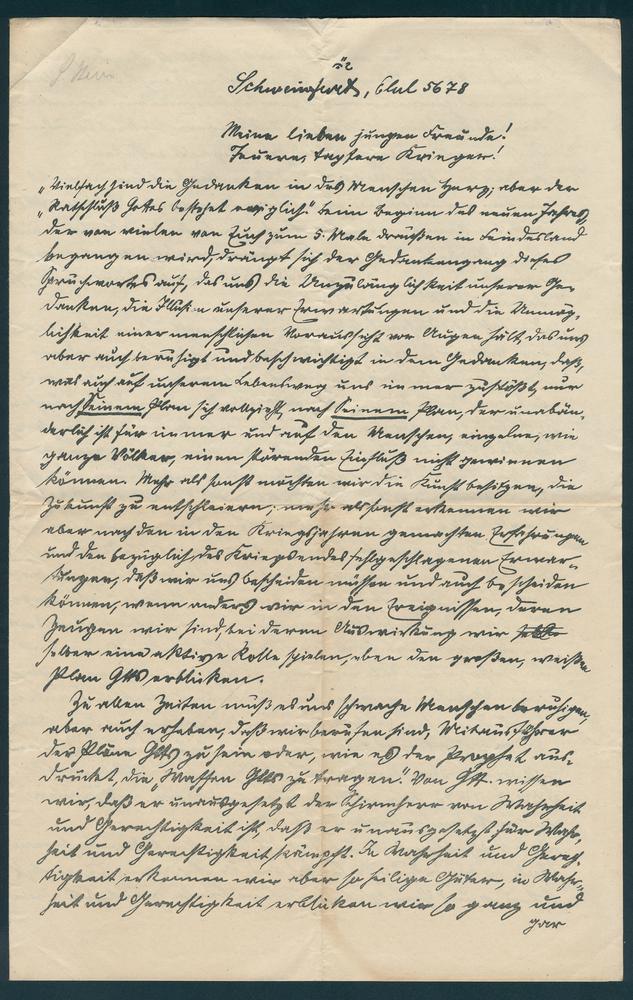 ב״ה
Schweinfurt, Elul 5678
Meine lieben jungen Freunde!
Teuere, tapfere Krieger!
„Vielfach sind die Gedanken in des Menschen Herz, aber der
„Ratschluß Gottes bestehet ewiglich". Beim Beginn des neuen Jahres,
der von vielen von Euch zum 5. Male draußen in Feindesland
begangen wird, drängt sich der Gedankengang dieses
Spruchwortes auf, das uns die Unzulänglichkeit unserer Ge-
danken, die Illusion unserer Erwartungen und die Unmög-
lichkeit einer menschlichen Voraussicht vor Augen hält, das uns
aber auch beruhigt und beschwichtigt in dem Gedanken, daß,
was auch auf unserem Lebensweg uns immer zustößt, nur
nach Seinem Plan sich vollzieht, nach Seinem Plan, der unabän-
derlich ist für immer und auf den Menschen, einzelne, wie
ganze Völker, einen störenden Einfluß nicht gewinnen
können. Mehr als sonst möchten wir die Kunst besitzen, die
Zukunft zu entschleiern; mehr als sonst erkennen wir
aber nach den in den Kriegsjahren gemachten Erfahrungen
und den bezüglich des Kriegsendes fehlgeschlagenen Erwar-
tungen, daß wir uns bescheiden müssen und auch bescheiden
können, wenn anders wir in den Ereignissen, deren
Zeugen wir sind, bei deren Auswirkung wir
selber eine aktive Rolle spielen, eben den großen, weisen
Plan Gttes erblicken.
Zu allen Zeiten muß es uns schwache Menschen beruhigen,
aber auch erheben, daß wir berufen sind, Mitausführer
der Pläne Gttes zu sein oder, wie es der Prophet aus-
drückt, die „Waffen Gttes zu tragen". Von Gtt wissen
wir, daß er unausgesetzt der Schirmherr von Wahrheit
und Gerechtigkeit ist, daß er unausgesetzt für Wahr-
heit und Gerechtigkeit kämpft. In Wahrheit und Gerech-
tigkeit erkennen wir aber so heilige Güter, in Wahr-
heit und Gerechtigkeit erblicken wir so ganz und
gar